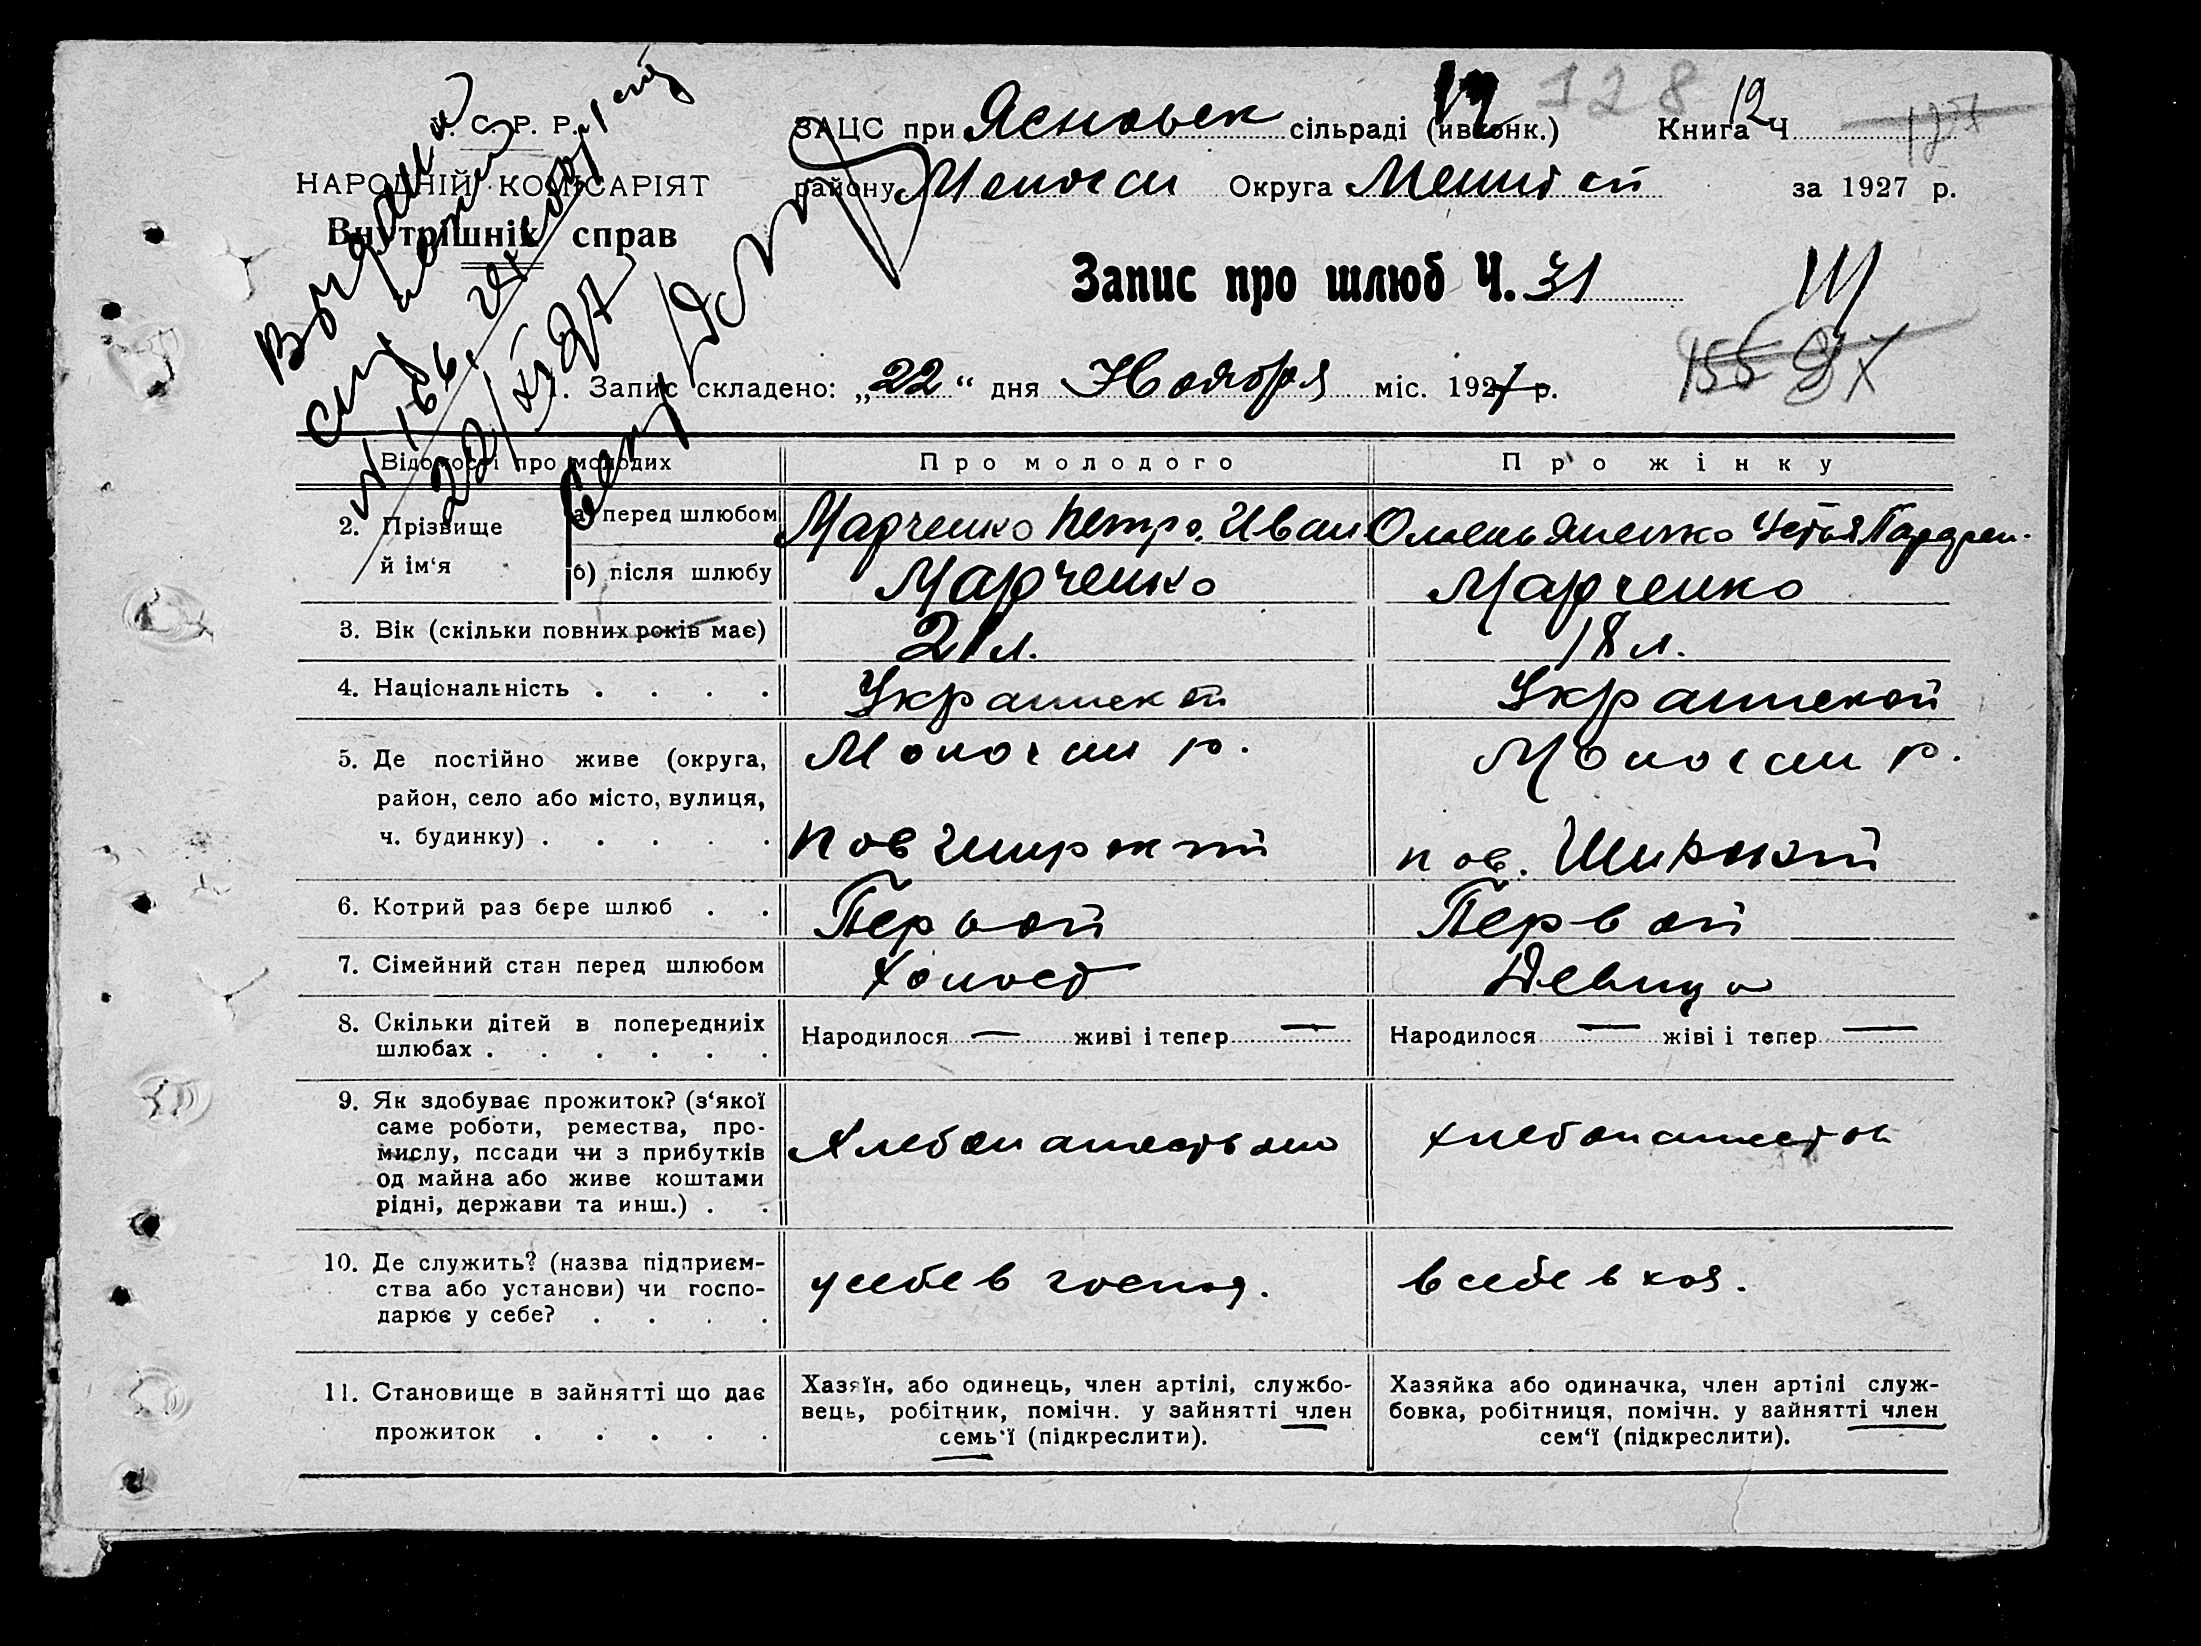 У. С. Р. Р.
НАРОДНІЙ КОМІСАРІЯТ
Внутрішніх справ
ЗАЦС при Ясновск сільраді (ивконк.) 128 Книга Ч 12
району Округа за 1927 р.
Запис про шлюб Ч. 31
1. Запис складено: „22“ дня Ноября міс. 1927 р.
155
№ 166
22/XI 27
Відомості про молодих Про молодого Про жінку
2. Прізвище й ім‘я
а) перед шлюбом Марченко Петро Иван Устья
б) після шлюбу Марченко Марченко
3. Вік (скільки повних років має) 21 л. 18 л.
4. Національність . . . . Украинской Украинской
5. Де постійно живе (округа, р. р.
район, село або місто, вулиця,
ч. будинку) . . . . . пов Широкий пов. Широкий
6. Котрий раз бере шлюб . . Первой Первой
7. Сімейний стан перед шлюбом Холост Девица
8. Скільки дітей в попередниіх Народилося — живі і тепер — Народилося — жіві і тепер —
шлюбах . . . . . .
9. Як здобуває прожиток? (з‘якої
саме роботи, ремества, про- Хлебопашеством хлебопашеством
мислу, посади чи з прибутків
од майна або живе коштами
рідні, держави та инш.) . .
10. Де служить? (назва підприєм-
ства або установи) чи госпо- у себе в господ. в себе в хоз.
дарює у себе? . . . .
11. Становище в зайнятті що дає Хазяїн, або одинець, член артілі, службо- Хазяйка або одиначка, член артілі служ-
вець, робітник, помічн. у зайнятті член бовка, робітниця, помічн. у зайнятті член
прожиток . . . . . семь‘ї (підкреслити). сем‘ї (підкреслити).